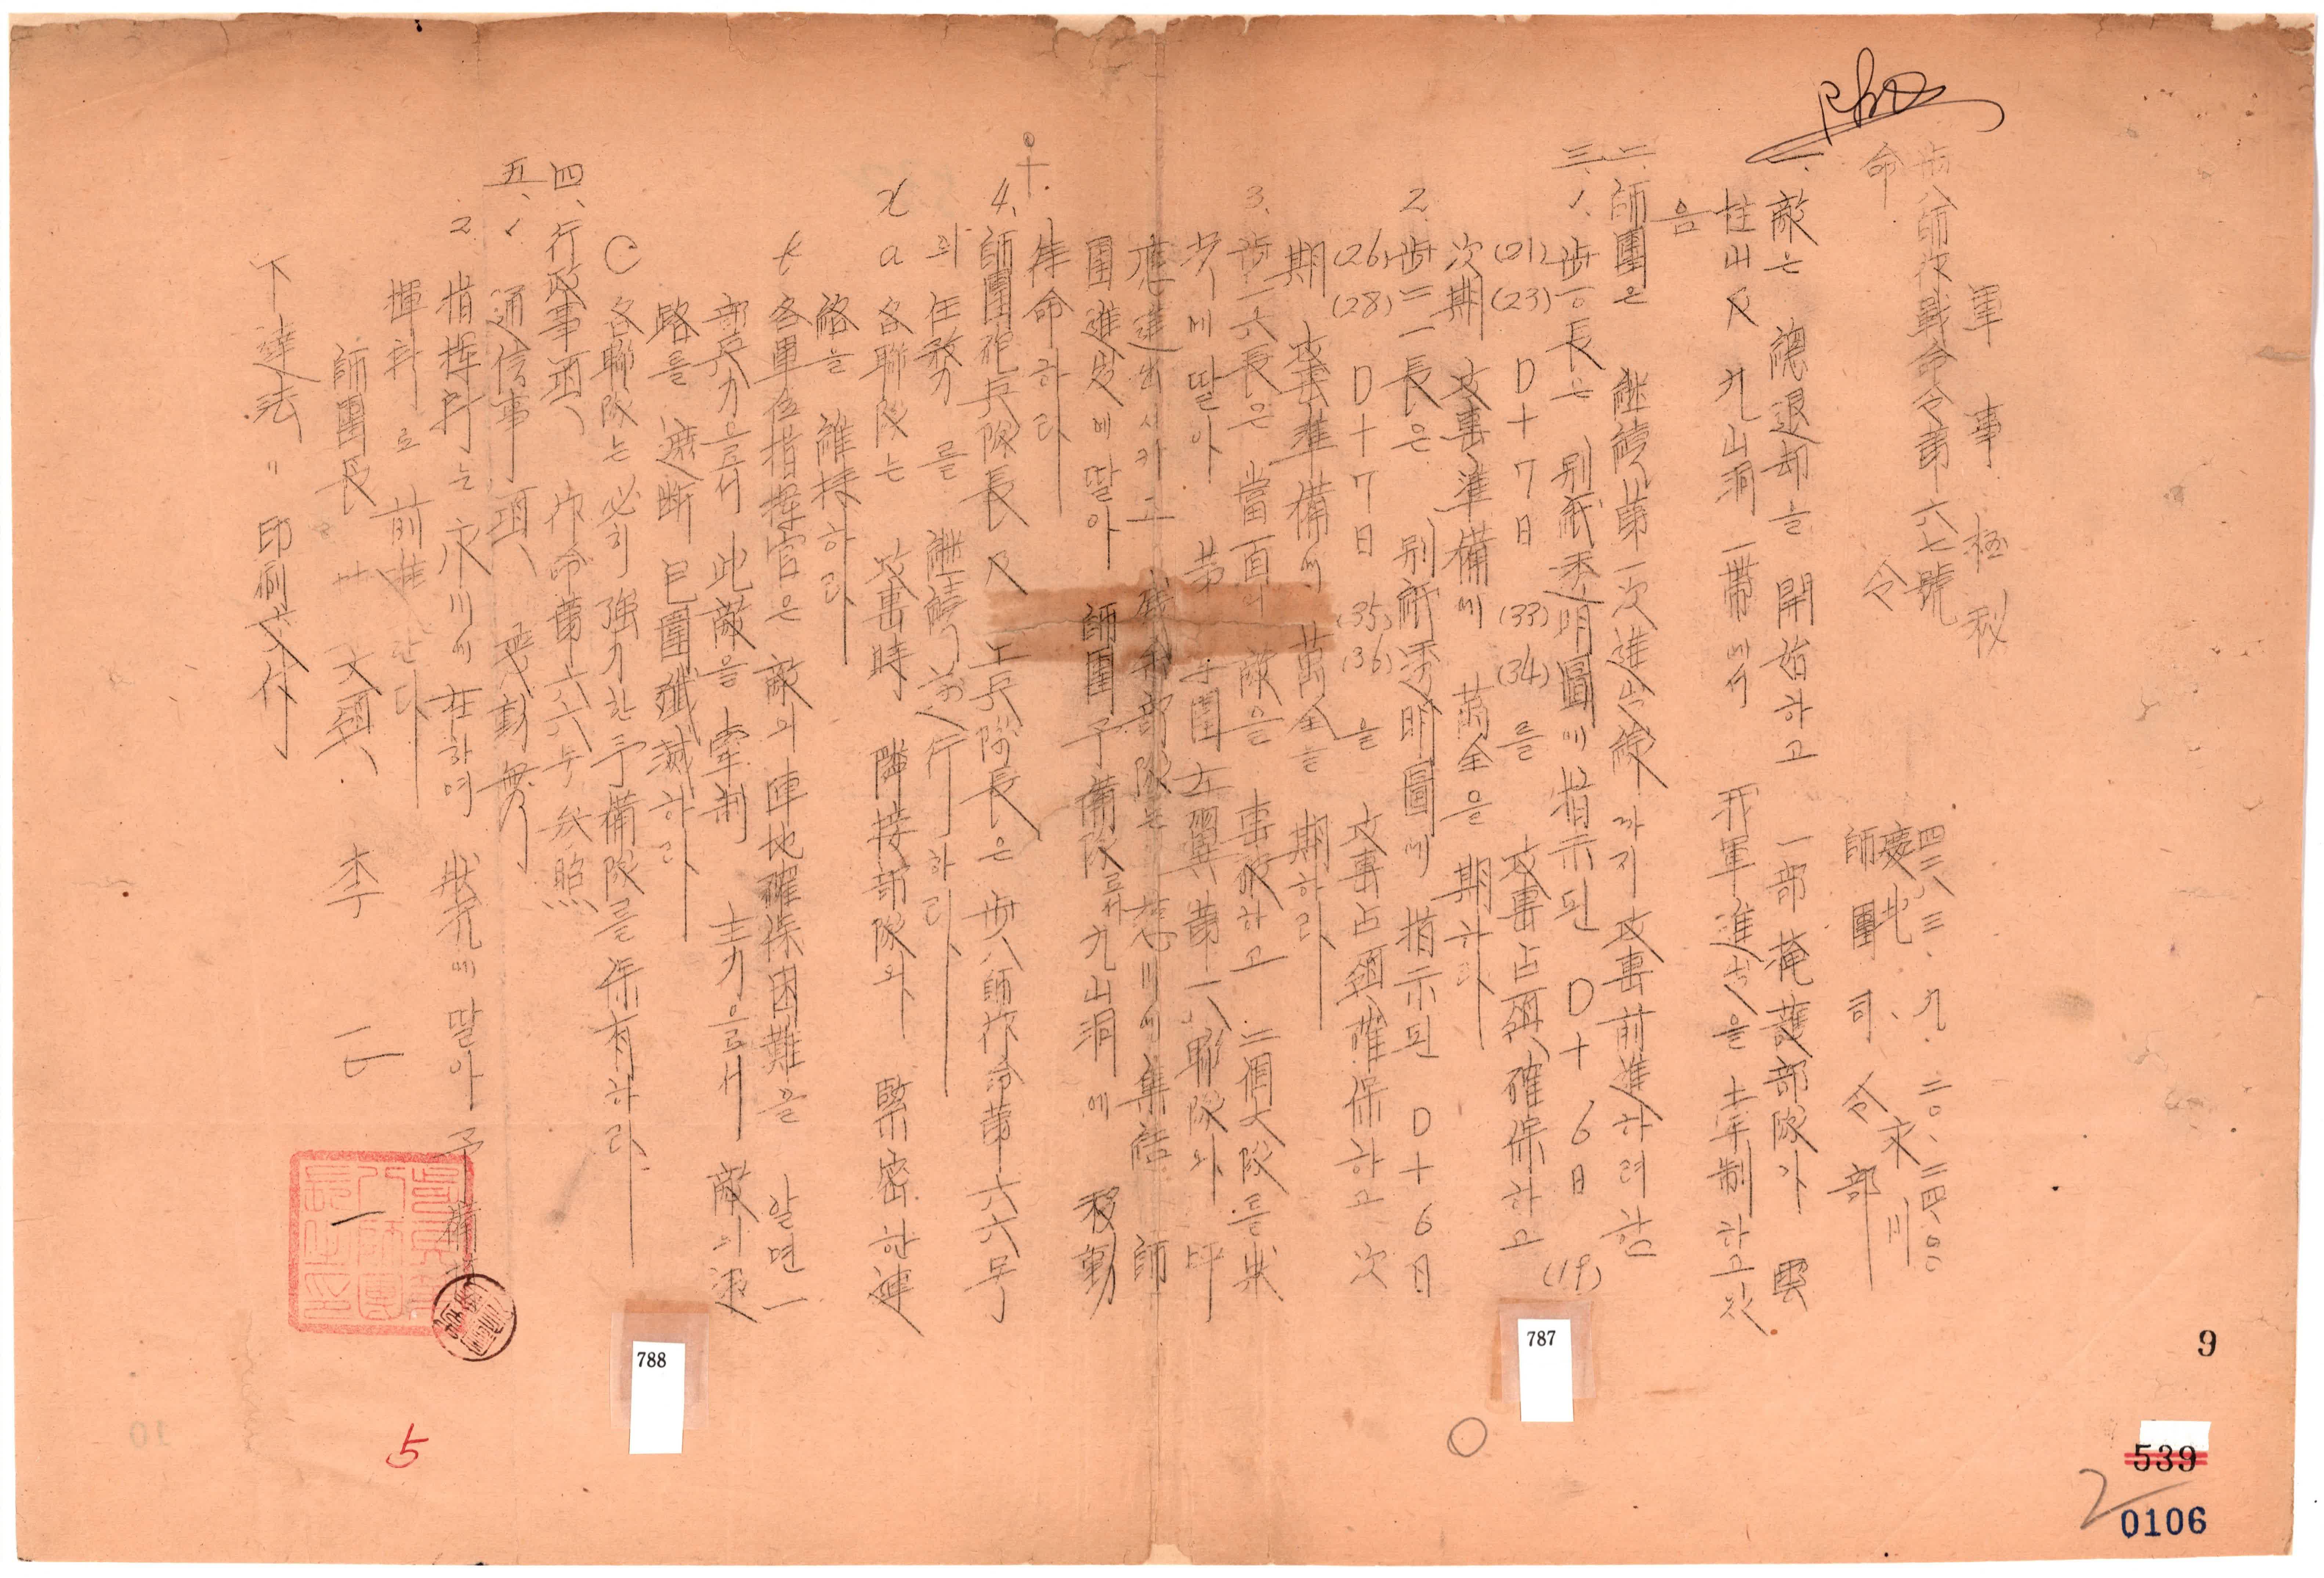 軍事極秘
步八師作戰命令第六七號
四二八三、九、二〇、二四、〇〇
慶北、永川
師團司令部
命令
一、敵는 總退却을 開始하고 一部 掩護部隊가 雲
住山 及 九山洞 一帶에서 我軍 進出을 牽制하고 있
음
二、師團은 繼續 第一次進出線까지 攻擊前進하려 함
三、1、步一〇長는 別紙 透明圖에 指示된 D+6日 (19)
(21)(23) D+7日 (33)(34)를 攻擊占領 確保하고
次期 攻擊準備에 萬全을 期하라
2、步二一長은 別紙透明圖에 指示된 D+6日
(26)(28) D+7日 (35)(36)을 攻擊占領 確保하고 次
期 攻擊準備에 萬全을 期하라
3、步一六長은 當面의 敵을 擊破하고 二個大隊를 狀
況에 딸아 第 師團 左翼 第一八聯隊와
進出시키고 殘余部隊는 永川에 集結 師
團進出에 딸아 師團予備隊로서 九山洞에 移動
待命하라
4、師團砲兵隊長 及 工兵隊長은 步八師作命第六六号
의 任務를 繼續 遂行하라
x a 各聯隊는 攻擊時 隣接部隊와 緊密한 連
絡을 維持하라
b 各單位指揮官은 敵의 陣地確保困難을 알면 一
部兵力으로서 此敵을 牽制 主力으로서 敵의 退
路를 遮斷 包圍殲滅하라
C 各聯隊는 必히 强力한 予備隊를 保有하라
四、行政事項、作命第六六号 參照
五、1、通信事項、變動無
2、指揮所는 永川에 在하며 狀況에 딸아 予備
揮所로 前進한다
師團長 大領 李 一
下達法 〃 印刷交付
787
788
9
539
0106
2
5